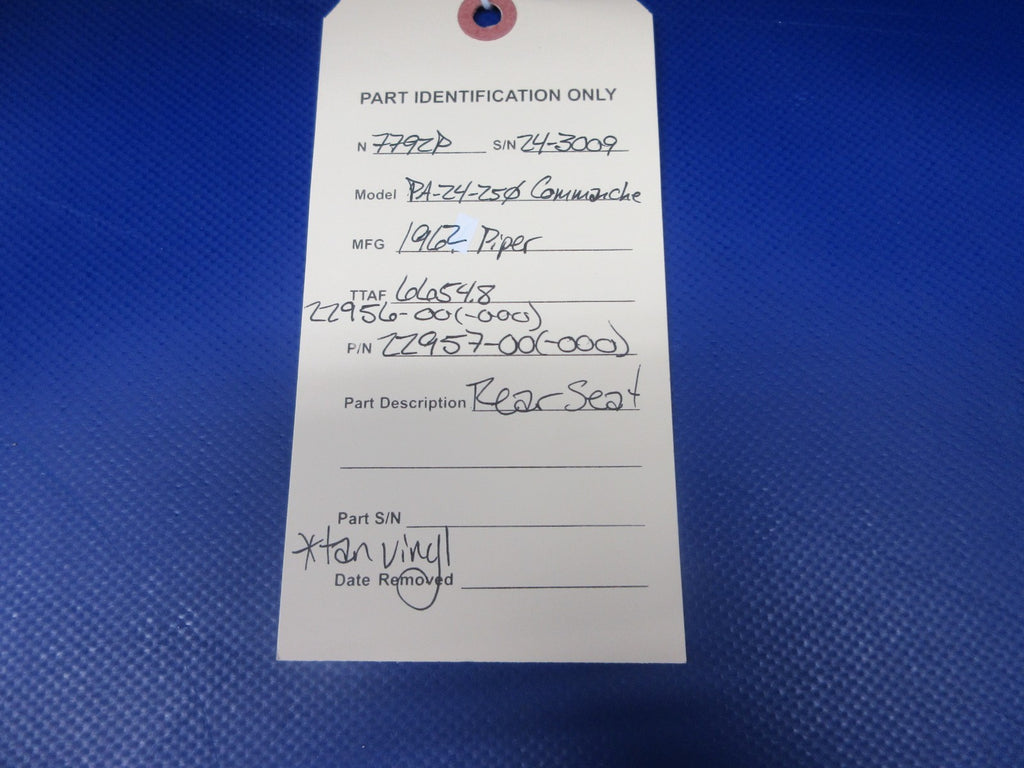 PART IDENTIFICATION ONLY
N 7792P S/N 24-3009
Model PA-24-250 Commanche
MFG 1962 Piper
TTAF 6654.8
22956-00(-000)
P/N 22957-00(-000)
Part Description Rear Seat
Part S/N
*tan vinyl
Date Removed